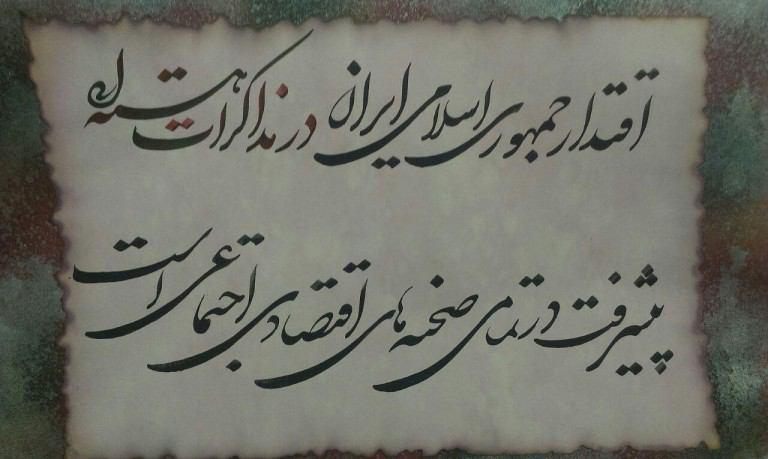 اقتدار جمهوری اسلامی ایران در مذاکرات هسته ای
پیشرفت در تمامی صحنه های اقتصادی اجتماعی است